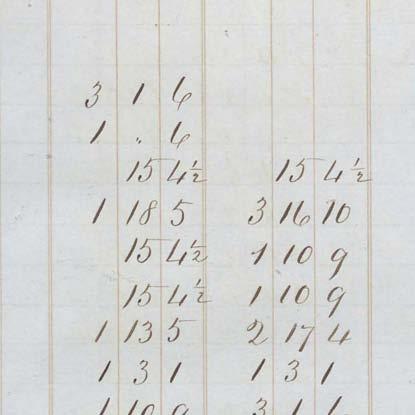 3 1 6
1 " 6
15 4½ 15 4½
1 18 5 3 16 10
15 4½ 1 10 9
15 4½ 1 10 9
1 13 5 2 17 4
1 3 1 1 3 1
1 10 9 3 1 6